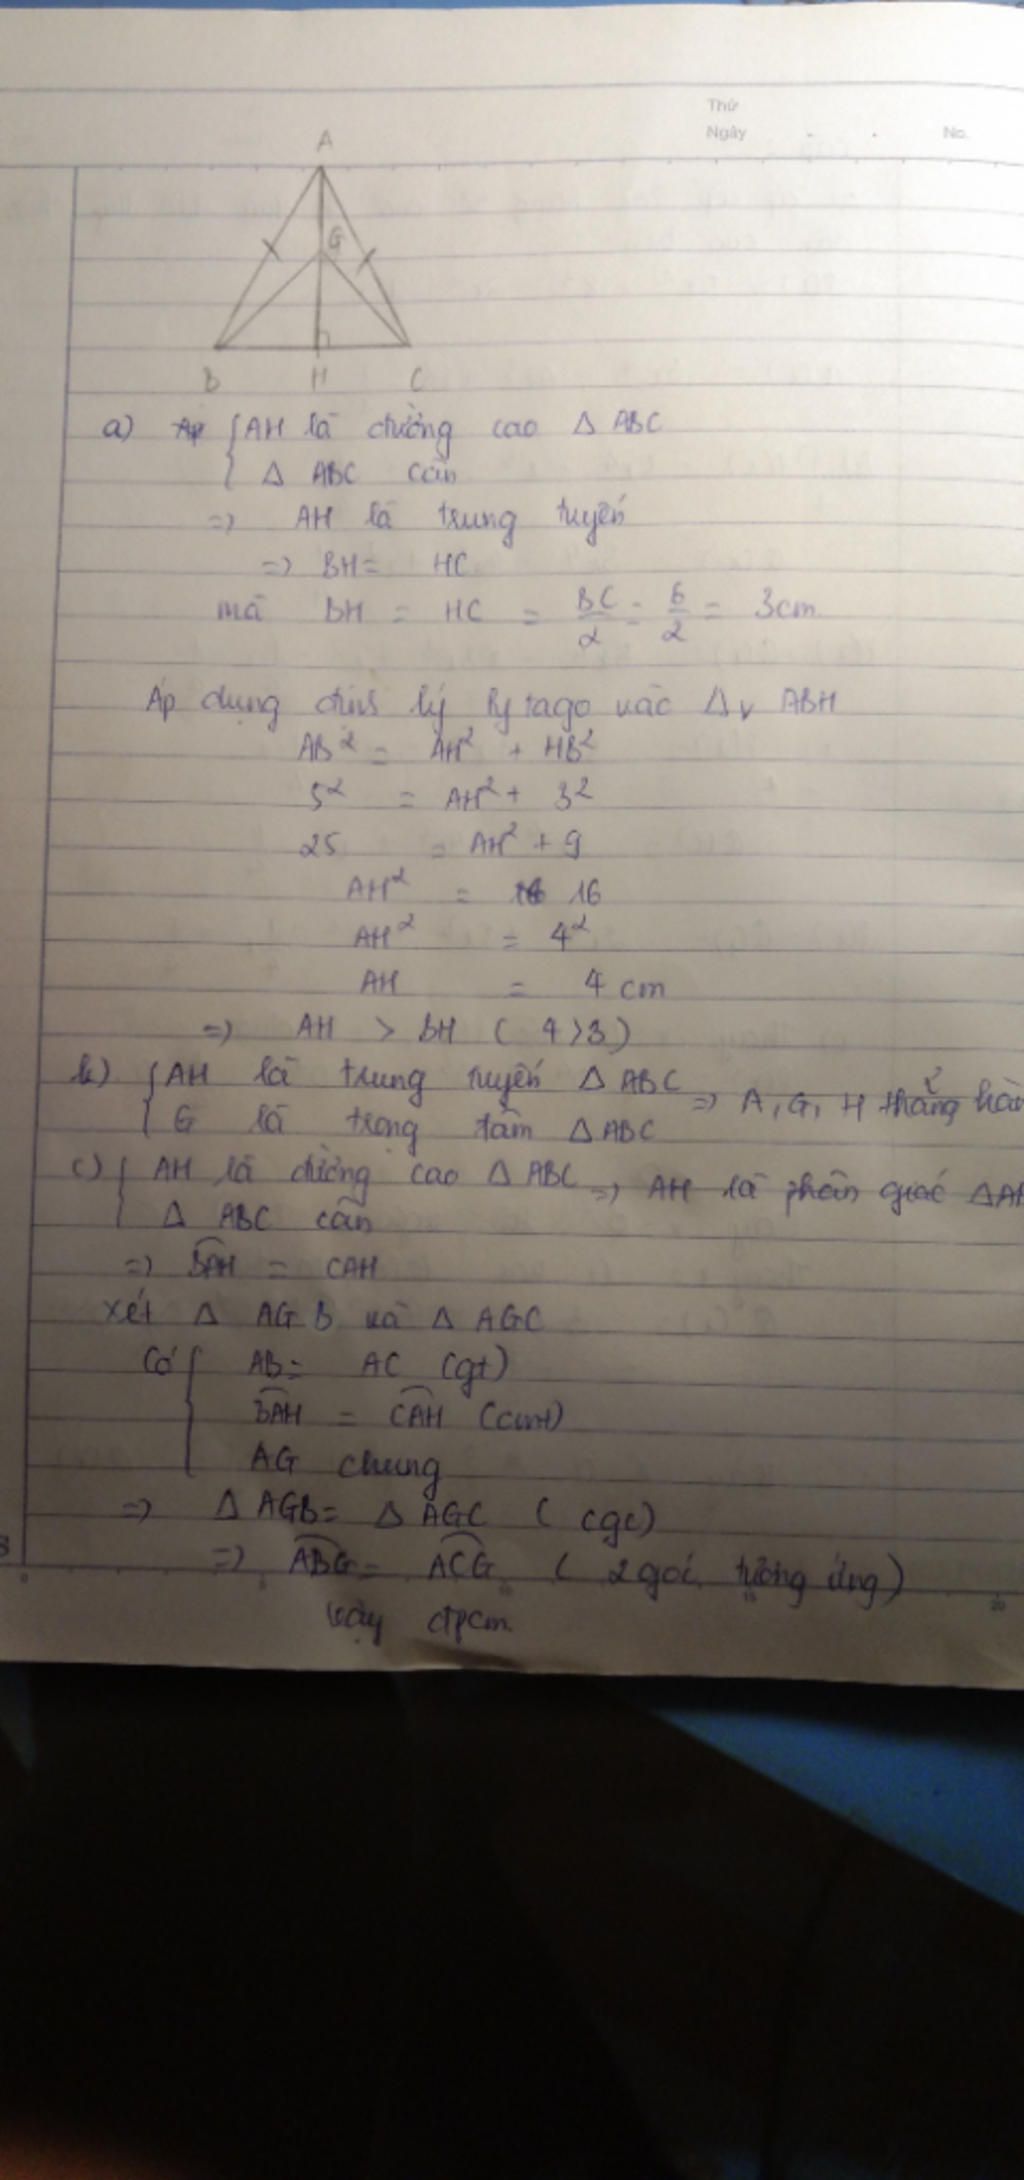 Thứ
Ngày . . No.
A
G
B H C
a) {AH là đường cao Δ ABC
{ Δ ABC cân
=> AH là trung tuyến
=> BH = HC
mà BH = HC = BC/2 = 6/2 = 3cm
Áp dụng định lý Pytago vào Δv ABH
AB² = AH² + HB²
5² = AH² + 3²
25 = AH² + 9
AH² = 16
AH² = 4²
AH = 4 cm
=> AH > BH ( 4>3)
b) {AH là trung tuyến Δ ABC => A, G, H thẳng hàn
{ G là trọng tâm Δ ABC
c) { AH là đường cao Δ ABC => AH là phân giác ΔAB
{ Δ ABC cân
=> BAH = CAH
xét Δ AGB và Δ AGC
Có { AB = AC (gt)
BAH = CAH (cmt)
AG chung
=> Δ AGB = Δ AGC ( cgc)
=> ABG = ACG ( 2 góc tương ứng)
Vậy đpcm